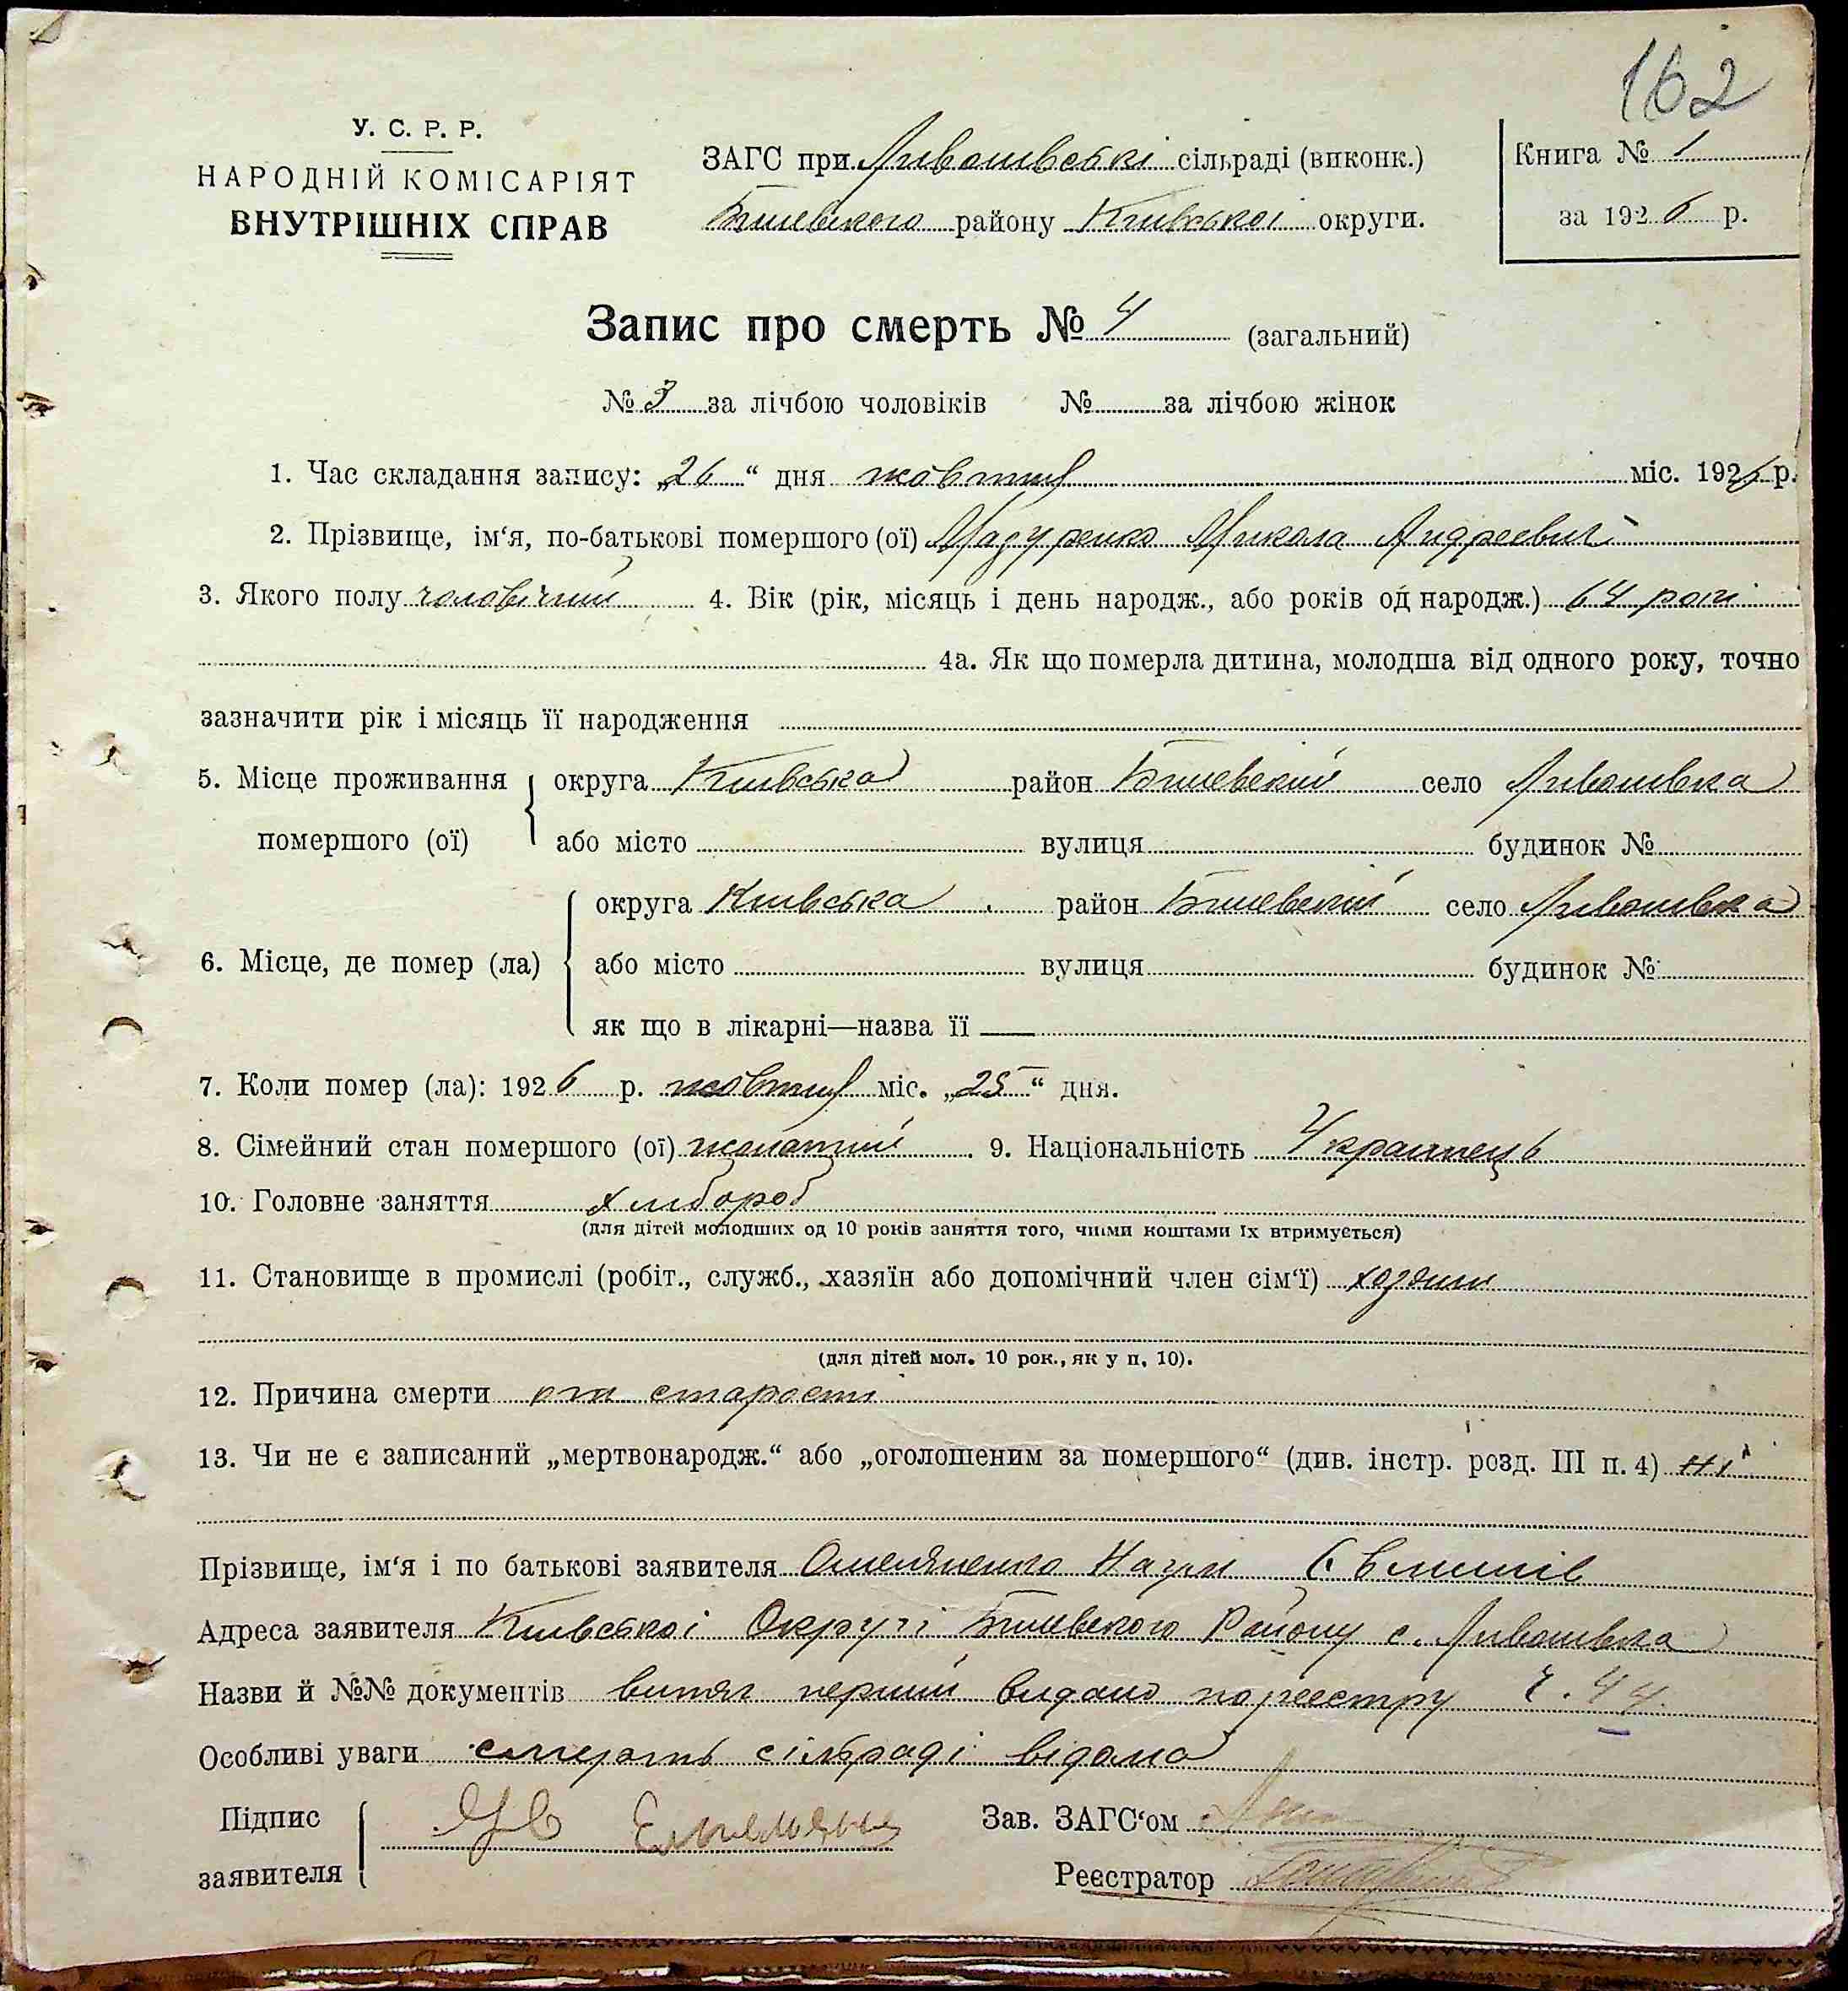 162
У. С. Р. Р.
НАРОДНІЙ КОМІСАРІЯТ
ВНУТРІШНІХ СПРАВ
ЗАГС при Лишовські сільраді (виконк.)
Бишевского району Київської округи.
Книга № 1
за 1926 р.
Запис про смерть № 4 (загальний)
№ 3 за лічбою чоловіків № за лічбою жінок
1. Час складання запису: „26“ дня жовтня міс. 1926 р.
2. Прізвище, ім‘я, по-батькові помершого (ої) Мазуренко Микола Андреевич
3. Якого полу чоловічий 4. Вік (рік, місяць і день народж., або років од народж.) 64 рокі
4а. Як що померла дитина, молодша від одного року, точно
зазначити рік і місяць її народження
5. Місце проживання помершого (ої) округа Київська район Бишевский село
або місто вулиця будинок №
6. Місце, де помер (ла) округа Київська район Бишевский село
або місто вулиця будинок №
як що в лікарні—назва її —
7. Коли помер (ла): 1926 р. жовтня міс. „25“ дня.
8. Сімейний стан помершого (ої) жонатий 9. Національність Українець
10. Головне заняття хлібороб
(для дітей молодших од 10 років заняття того, чиїми коштами їх втримується)
11. Становище в промислі (робіт., служб., хазяїн або допомічний член сім‘ї) хозяин
(для дітей мол. 10 рок., як у п. 10).
12. Причина смерти от старости
13. Чи не є записаний „мертвонародж.“ або „оголошеним за помершого“ (див. інстр. розд. III п. 4) ні
Прізвище, ім‘я і по батькові заявителя Омеляненко Наум
Адреса заявителя Київської Округі Бишевского Району с.
Назви й №№ документів витяг перший видано по реестру ч. 44.
Особливі уваги смерть сільраді відома
Підпис заявителя
Зав. ЗАГС‘ом
Реєстратор